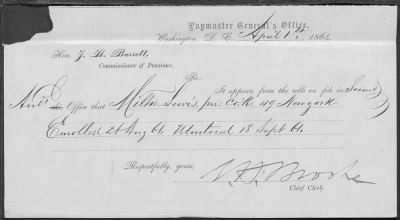 Paymaster General's Office,
Washington, D. C. April 1 186
Hon. J. H. Barrett,
Commissioner of Pensions.
Sir
It appears from the rolls on file in Second
Office that Milton Lewis, Co. K 49 New York
Enrolled 26 Aug 61 Mustered 18 Sept 61
Respectfully, yours,
Chief Clerk.